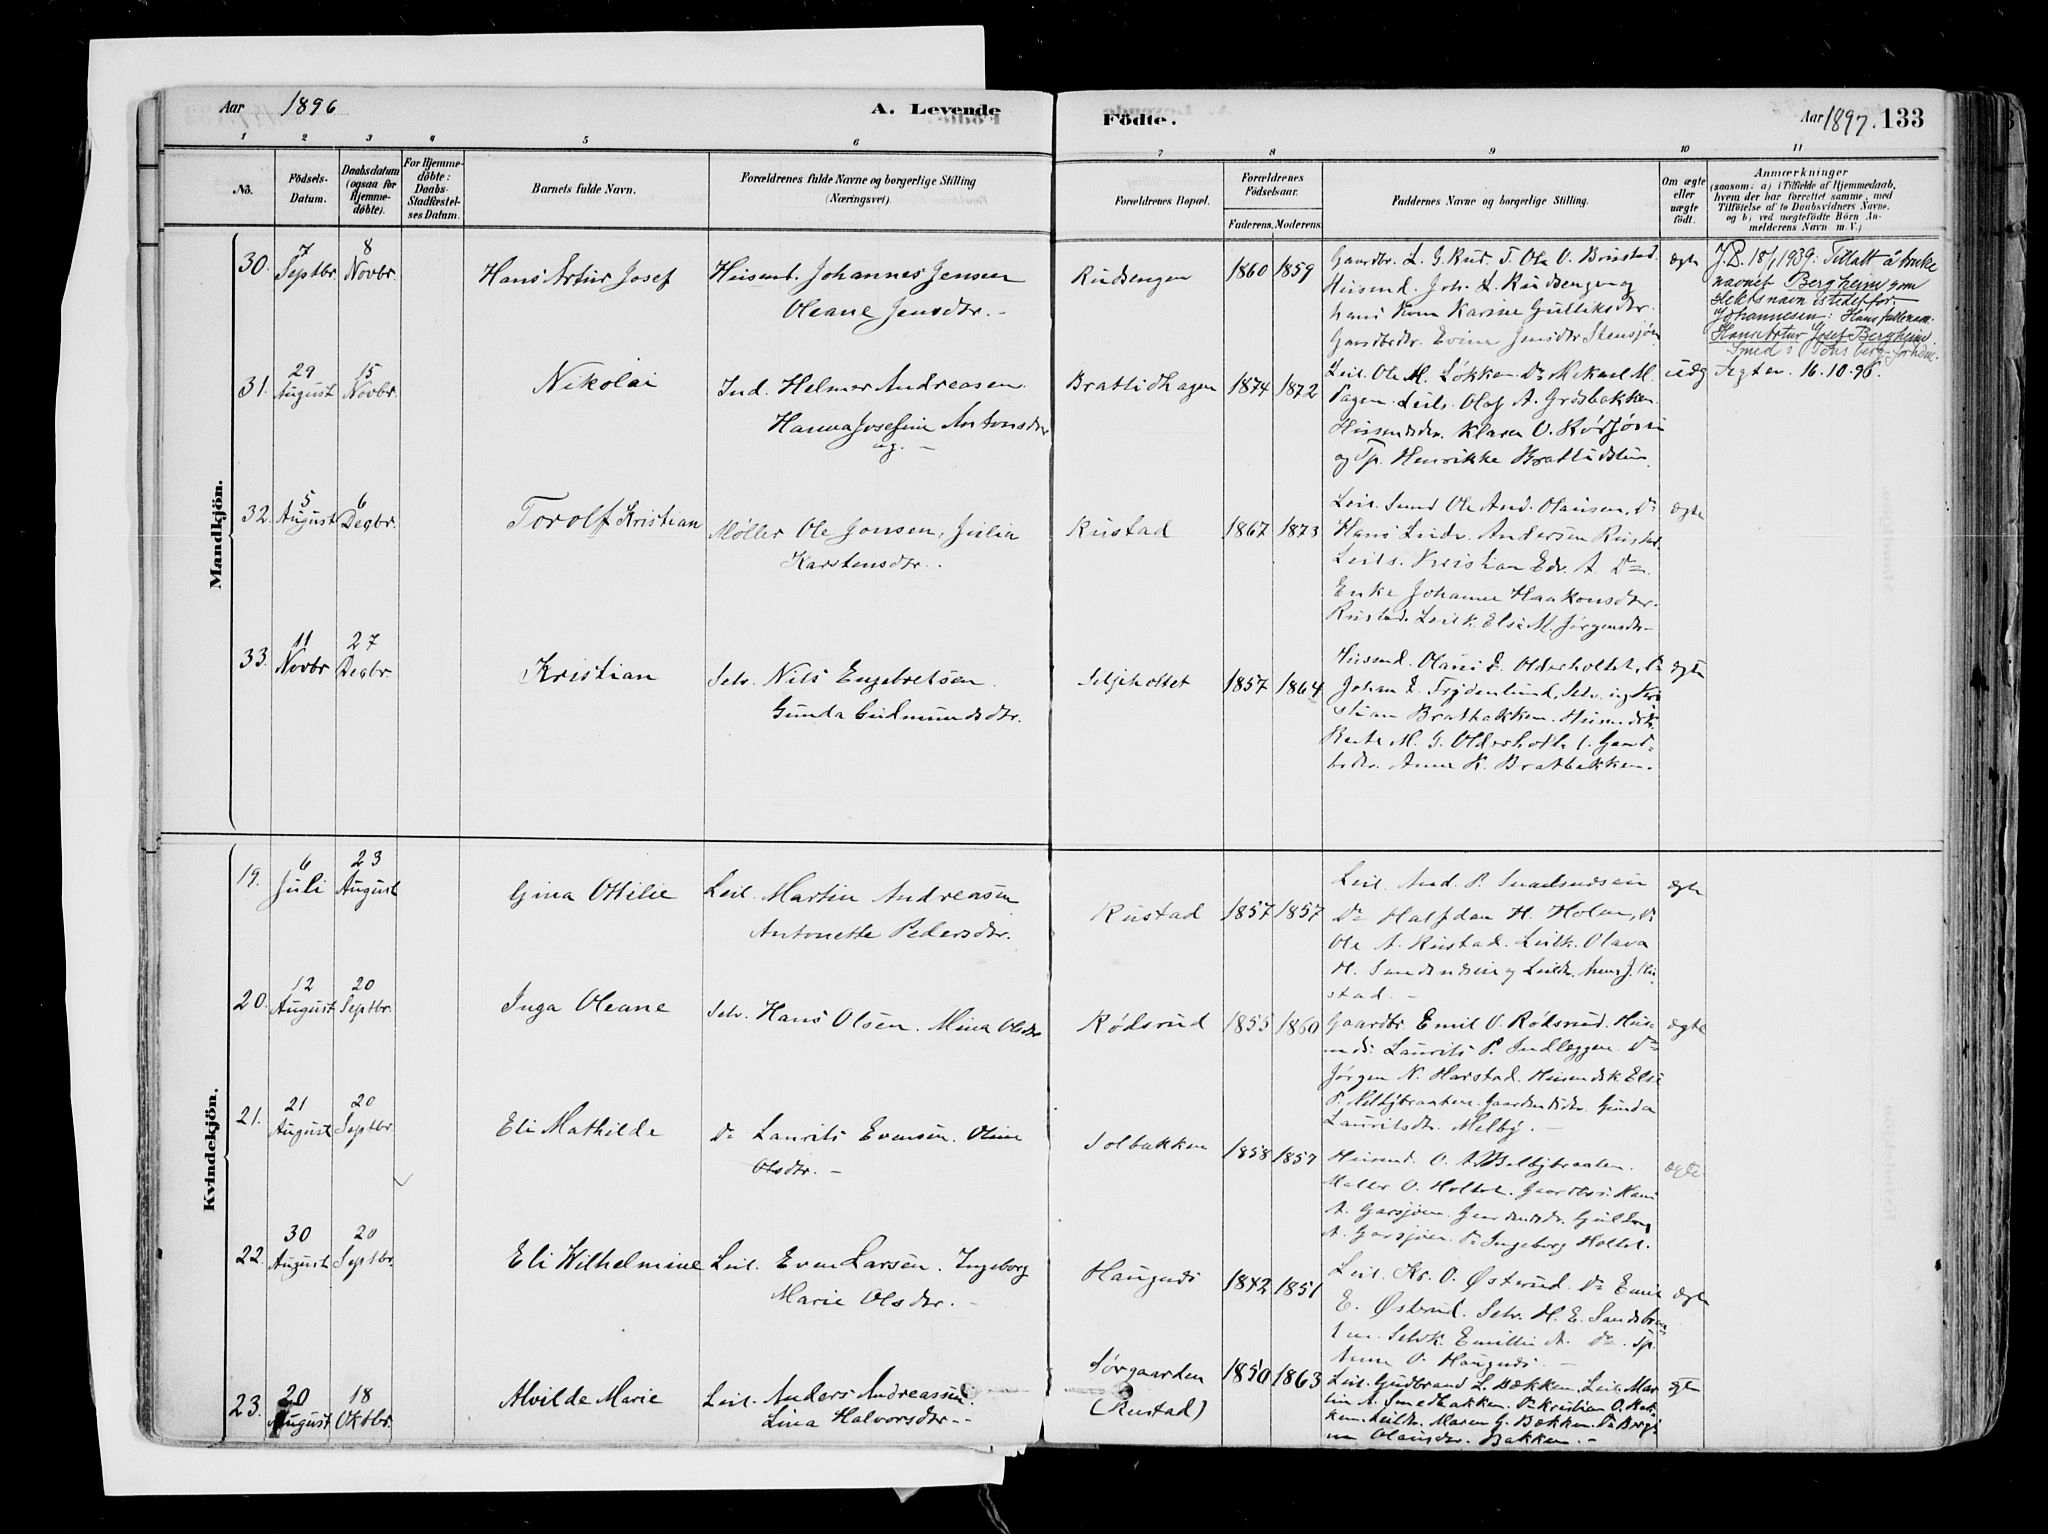 Aar 1896 A. Levende
Födte. Aar 1897. 133
1 2 3 4 5 6
7 8 9 10 11
No.
Födsels-
Datum.
Daabsdatum
(ogsaa for
Hjemme-
döbte).
For Hjemme-
döbte:
Daabs-
Stadfæstel-
ses Datum.
Barnets fulde Navn.
Forældrenes fulde Navne og borgerlige Stilling
(Næringsvei).
Forældrenes Bopæl.
Forældrenes
Födselsaar.
Faderens. Moderens.
Faddernes Navne og borgerlige Stilling.
Om ægte
eller
uægte
födt.
Anmærkninger
(saasom: a) i Tilfælde af Hjemmedaab,
hvem der har forrettet samme, med
Tilföielse af to Daabsvidners Navne.
og b) ved uægtefödte Börn An-
melderens Navn m. V.)
Mandkjön.
30.
7
Septbr.
8
Novbr.
Hans Artur Josef
Husmd. Johannes Jensen
Oleane Jensdtr.
Rudsengen
1860 1859
Gaardbr. L. G. Rud. F. Ole O. Brustad.
Husmd. Joh. L. Rudsengen og
hans Kone Karine Gulliksdtr.
Gaardbrdr. Evine Jensdtr Stensjøen
ægte
J.D. 18/1 1939: Tillatt å bruke
navnet Bergheim som
slektsnavn istedetfor
Johannesen: Hans fulle navn
Hans Artur Josef Bergheim.
Smed i Tønsberg
31.
29
August
15
Novbr.
Nikolai
Ind. Helmer Andreasen.
Hanna Josefine Antonsdtr
ug.
Brattidhagen
1874 1872
Leil. Ole M. Løkken Do Mikael M.
Hagen. Leil. Olaf A. Grøsbakken
Husmdsdtr. Klara O. Rødsjøen
og Tp. Henrikke Brattidstuen.
uæg
Ægter. 16.10.96.
32.
5
August
6
Decbr.
Torolf Kristian
Møller Ole Jonsen, Julia
Karstensdtr.
Rustad
1867 1873
Leil. Smed Ole And. Olausen, Do
Hans Andersen Rustad.
Leils. Kristian Edv. A. Do
Enke Johanne Haakonsdtr.
Rustad. Leilk. Else M. Jørgensdtr
ægte
33.
11
Novbr
27
Decbr.
Kristian
Selv. Nils Engebretsen.
Gunda Gudmundsdtr.
Seljeholtet
1857 1864
Husmd. Olaus E. Olderholtet, Do
Johan E. Frydenlund, Selv. ing Kri
stian Bratbakken. Husmdsdtr.
Berte M. G. Olderholt. Gaard
brdtr. Anne K. Bratbakken.
ægte
Kvindekjön.
19.
6
Juli
23
August
Gina Otilie
Leil. Martin Andreasen
Antonette Pedersdtr.
Rustad
1857 1857
Leil. And. P. Sandsndsen
Do Halfdan H. Holen, Do
Ole A. Rustad. Leilk. Olava
H. og Leildtr. J. Ru
stad.
ægte
20.
12
August
20
Septbr.
Inga Oleane
Selv. Hans Olsen. Mina Olsdtr
Rødsrud
1855 1860
Gaardbr. Emil O. Rødsrud. Hus
mds. Laurits P. Indleggen. Do
Jørgen N. Harstad. Husmdsk. Else
P. Melbybraaten. Gaardmdsdtr. Gunda
Lauritsdtr. Melby.
ægte
21.
21
August
20
Septbr.
Eli Mathilde
Do Laurits Evensen. Oline
Olsdtr.
Solbakken
1858 1857
Husmd. O. A. Melbybraaten.
Maler O. Holtet. Gaardbrs. Hans
A. Garsjøen. Gaardmdsdtr. Gulborg
A. Garsjøen. Do Ingeborg Holtet.
ægte
22.
30
August
20
Septbr.
Eli Wilhelmine
Leil. Even Larsen. Ingeborg
Marie Olsdtr.
Haugnds
1842 1851
Leil. Kr. O. Østerud. Do Emil
E. Østerud. Selv. H. E. Sandsbraa
ten. Selvk. Emilie A. Do. Tp.
Anne O. Haugnds.
ægte
23.
20
August
18
Oktbr.
Alvilde Marie
Leil. Anders Andreassen.
Lina Halvorsdtr.
Sørgaarden
(Rustad)
1850 1863
Leil. Gudbrand L. Bækken. Leil. Mar
tin A. Bakken. Do Kristian O. Bak
ken. Leilk. Maren G. Bækken. Do Berg
Olausdtr. Bakken.
ægte